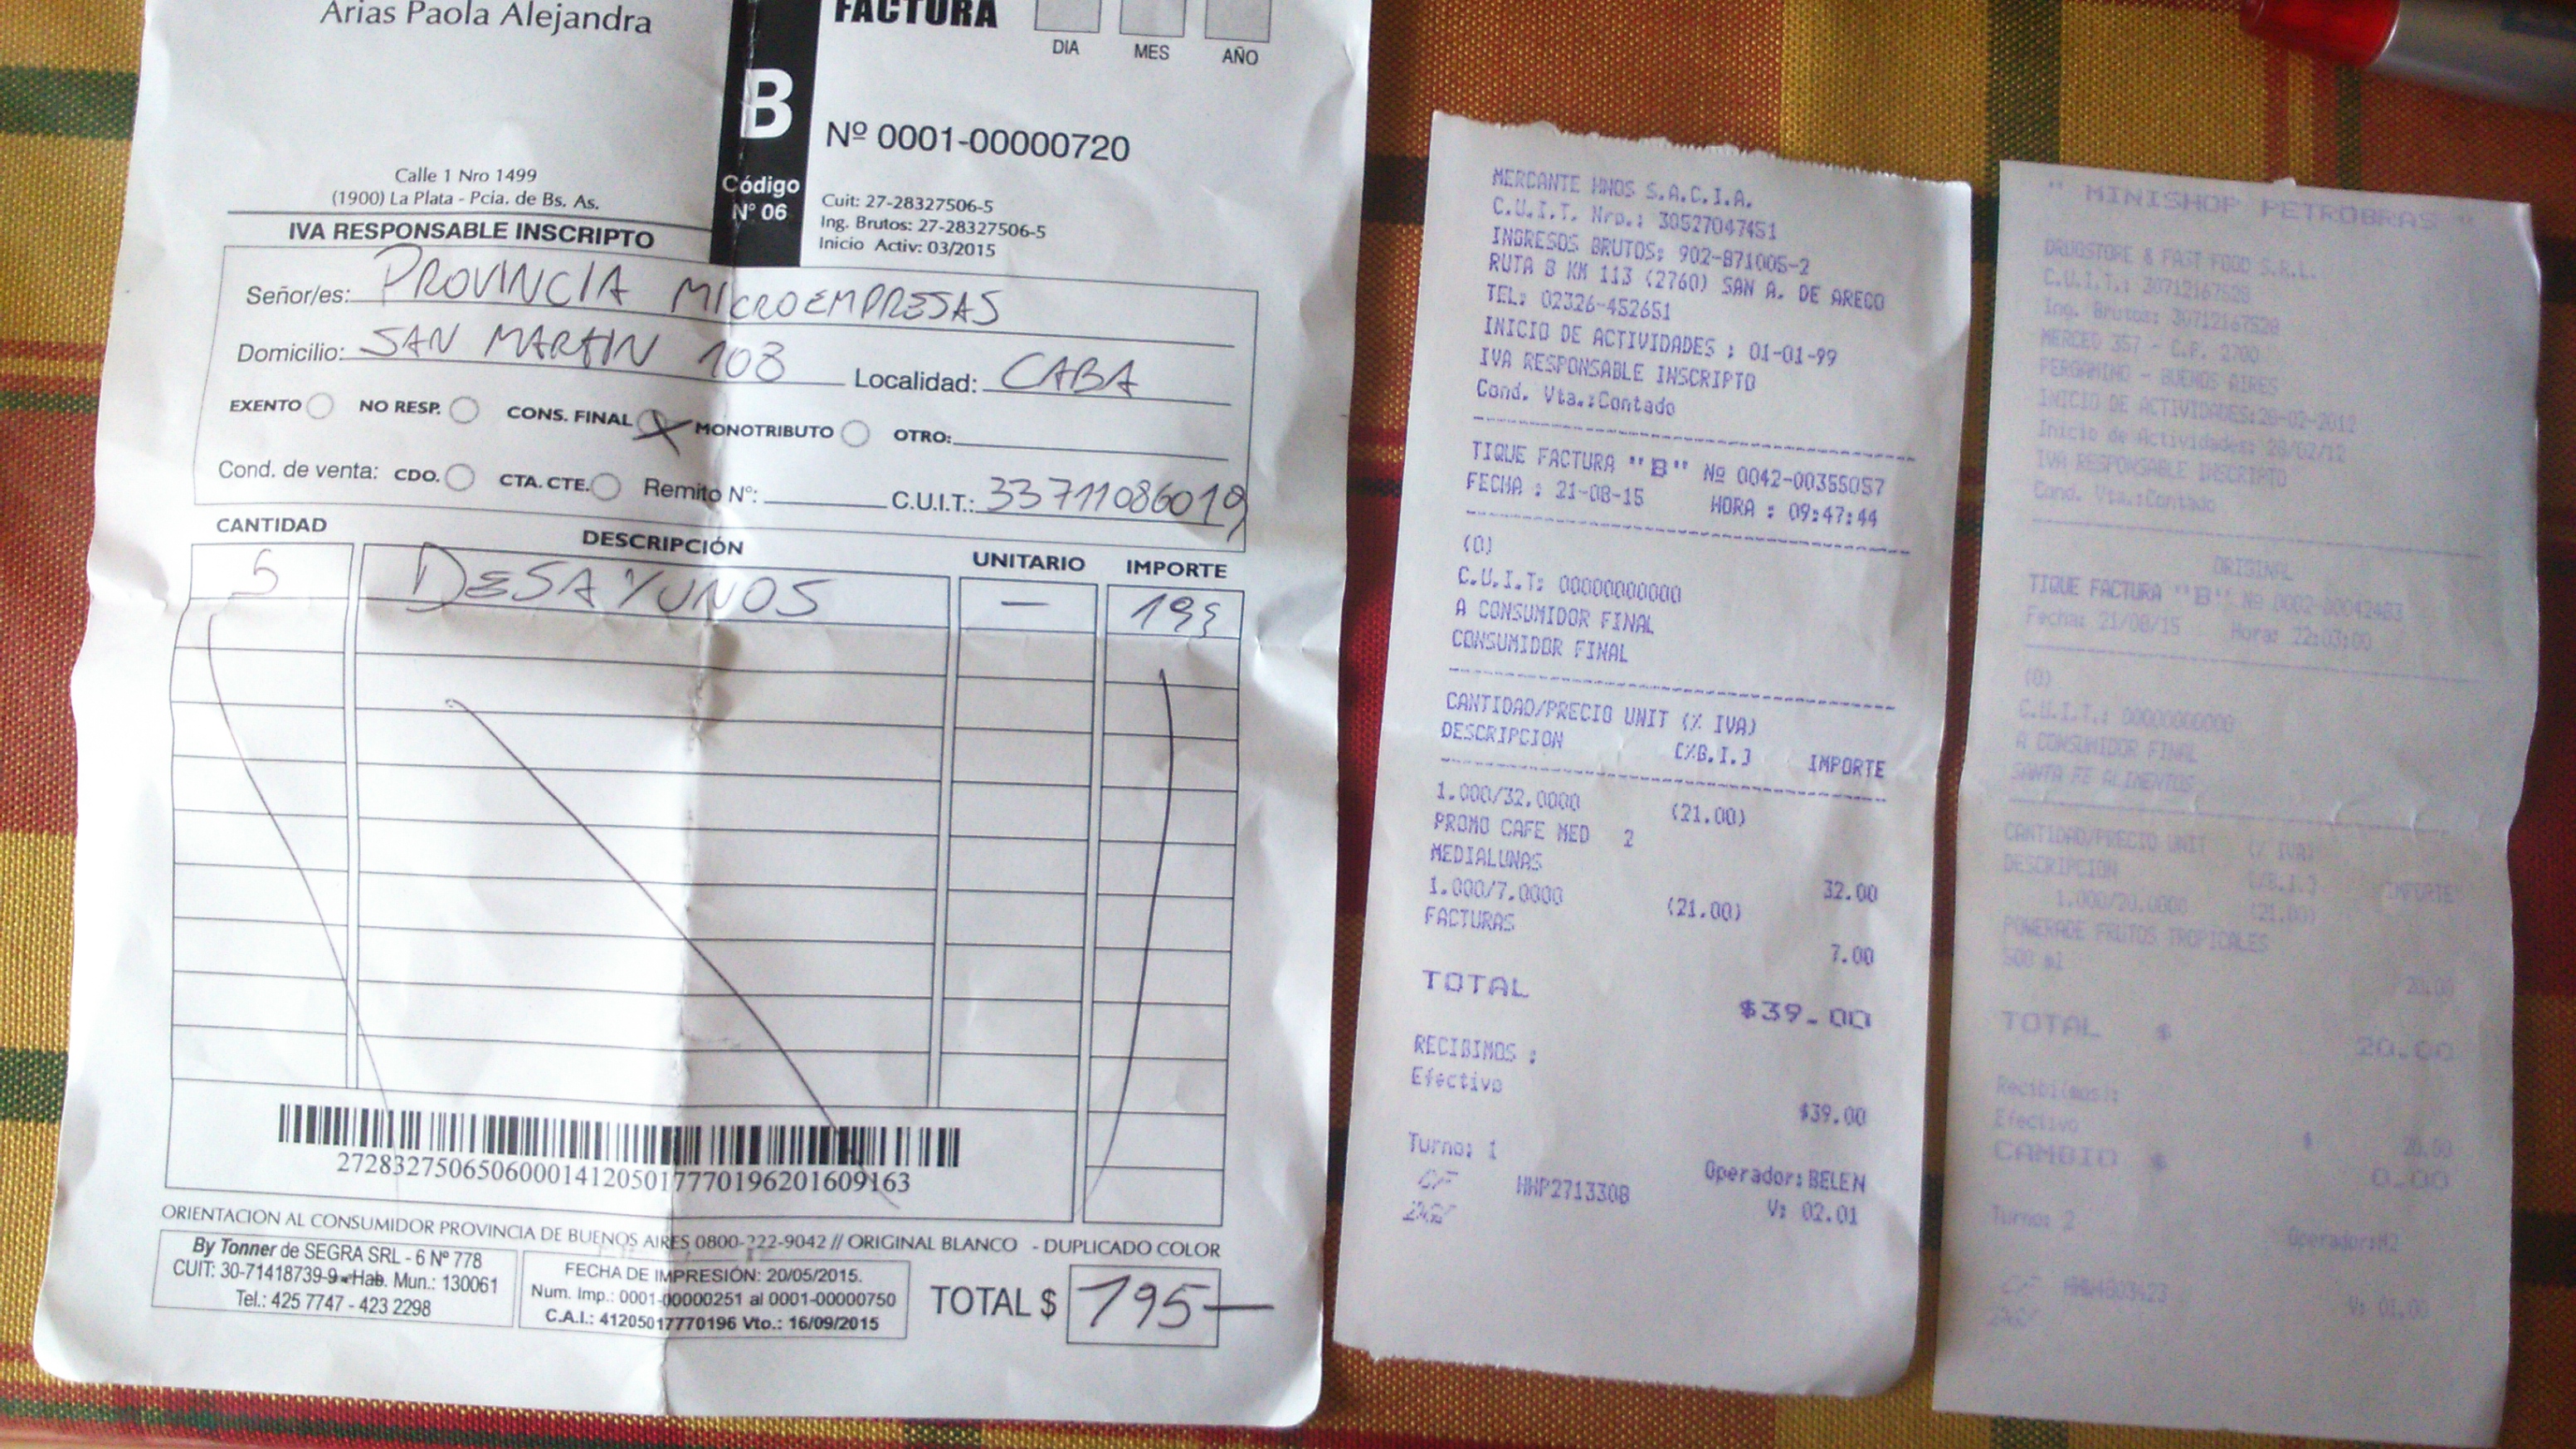 Arias Paola Alejandra
Calle 1 Nro 1499
(1900) La Plata - Pcia. de Bs. As.
IVA RESPONSABLE INSCRIPTO
B
Código
N° 06
FACTURA
DIA MES AÑO
Nº 0001-00000720
Cuit: 27-28327506-5
Ing. Brutos: 27-28327506-5
Inicio Activ: 03/2015
Señor/es: PROVINCIA MICROEMPRESAS
Domicilio: SAN MARTIN 108 Localidad: CABA
EXENTO NO RESP. CONS. FINAL MONOTRIBUTO OTRO:
Cond. de venta: CDO. CTA. CTE. Remito N°: C.U.I.T.: 33711086019
CANTIDAD DESCRIPCIÓN UNITARIO IMPORTE
5 DESAYUNOS — 195
27283275065060001412050177701962016​09163
ORIENTACION AL CONSUMIDOR PROVINCIA DE BUENOS AIRES 0800-222-9042 // ORIGINAL BLANCO - DUPLICADO COLOR
By Tonner de SEGRA SRL - 6 Nº 778
CUIT: 30-71418739-9 - Hab. Mun.: 130061
Tel.: 425 7747 - 423 2298
FECHA DE IMPRESIÓN: 20/05/2015.
Num. Imp.: 0001-00000251 al 0001-00000750
C.A.I.: 41205017770196 Vto.: 16/09/2015
TOTAL $ 195—
MERCANTE HNOS S.A.C.I.A.
C.U.I.T. Nro.: 30527047451
INGRESOS BRUTOS: 902-871005-2
RUTA 8 KM 113 (2760) SAN A. DE ARECO
TEL: 02326-452651
INICIO DE ACTIVIDADES : 01-01-99
IVA RESPONSABLE INSCRIPTO
Cond. Vta.:Contado
TIQUE FACTURA "B" Nº 0042-00355057
FECHA : 21-08-15 HORA : 09:47:44
(0)
C.U.I.T: 00000000000
A CONSUMIDOR FINAL
CONSUMIDOR FINAL
CANTIDAD/PRECIO UNIT (% IVA)
DESCRIPCION [%B.I.] IMPORTE
1.000/32.0000 (21.00)
PROMO CAFE MED 2
MEDIALUNAS 32.00
1.000/7.0000 (21.00)
FACTURAS 7.00
TOTAL $39.00
RECIBIMOS :
Efectivo $39.00
Turno: 1 Operador:BELEN
CF HHP2713308 V: 02.01
" MINISHOP PETROBRAS "
DRUGSTORE & FAST FOOD S.R.L.
C.U.I.T.: 30712167528
Ing. Brutos: 30712167528
MERCED 357 - C.P. 2700
PERGAMINO - BUENOS AIRES
INICIO DE ACTIVIDADES:28-02-2012
Inicio de Actividades: 28/02/12
IVA RESPONSABLE INSCRIPTO
Cond. Vta.:Contado
ORIGINAL
TIQUE FACTURA "B" Nº 0002-00042483
Fecha: 21/08/15 Hora: 22:03:00
(0)
C.U.I.T.: 00000000000
A CONSUMIDOR FINAL
SANTA FE ALIMENTOS
CANTIDAD/PRECIO UNIT (% IVA)
DESCRIPCION [%B.I.] IMPORTE
1.000/20.0000 (21.00)
POWERADE FRUTOS TROPICALES
500 ml 20.00
TOTAL $ 20.00
Recibi(mos):
Efectivo $ 20.00
CAMBIO $ 0.00
Turno: 2 Operador:M2
CF V: 01.00